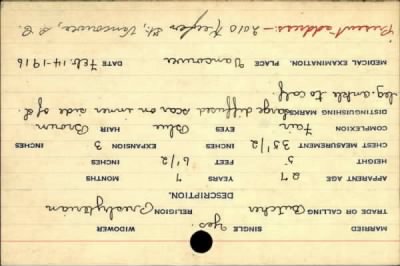 MARRIED SINGLE yes. WIDOWER
TRADE OR CALLING Butcher RELIGION Presbyterian
DESCRIPTION.
APPARENT AGE 27 YEARS 7 MONTHS
HEIGHT 5' FEET 6 1/2 INCHES
CHEST MEASUREMENT 35 1/2 EXPANSION 3 INCHES
COMPLEXION Fair EYES Blue HAIR Brown
DISTINGUISHING MARKS Large diffused scar on inner side of L.
leg. ankle to calf.
MEDICAL EXAMINATION. PLACE Vancouver DATE Feb. 14-1916
Present address:- 2010 St., Vancouver, B.C.